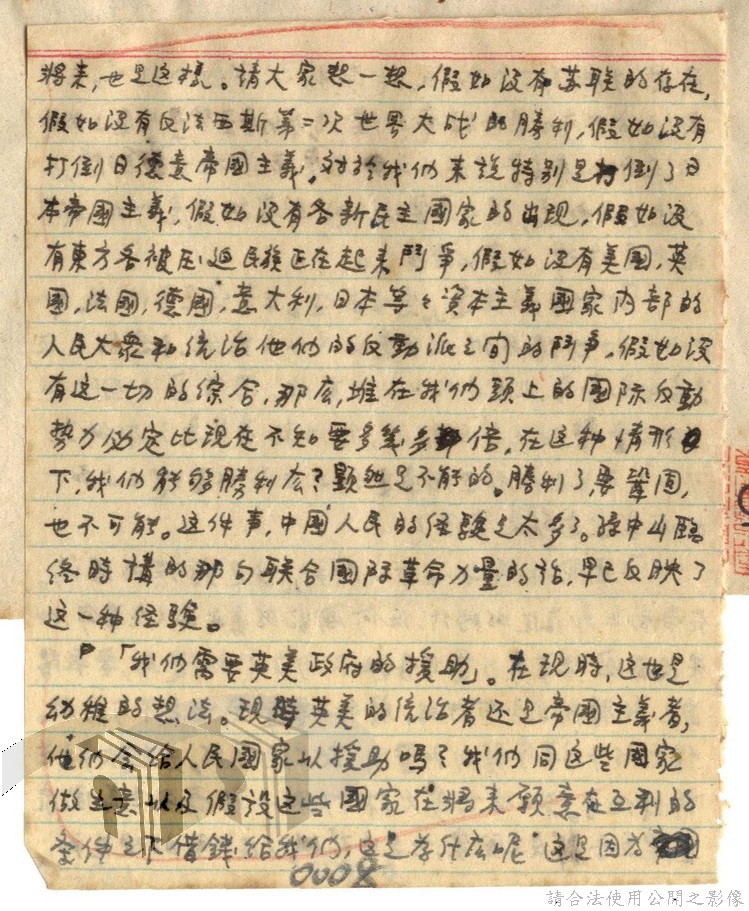 将来,也是这樣。請大家想一想,假如没有苏联的存在,
假如没有反法西斯第二次世界大战的勝利,假如没有
打倒日德意帝國主義,对於我们来說特别是打倒了日
本帝國主義,假如没有各新民主國家的出现,假如没
有東方各被压迫民族正在起来鬥爭,假如没有美國,英
國,法國,德國,意大利,日本等々資本主義國家内部的
人民大衆和統治他们的反動派之间的鬥争,假如没
有这一切的综合,那么,堆在我们頭上的國际反動
勢力必定比现在不知要多幾多倍,在这种情形
下,我们能够勝利么?显然是不能的。勝利了,要鞏固,
也不可能。这件事,中國人民的经驗是太多了。孫中山臨
終時講的那句联合國际革命力量的话,早已反映了
这一种经驗。
「我们需要英美政府的援助」。在现時,这也是
幼稚的想法。现時英美的统治者还是帝國主義者,
他们会给人民國家以援助嗎?我们同这些國家
做生意以及假設这些國家在将来願意在互利的
条件之下借錢给我们,这是为什么呢 这是因为
0008
請合法使用公開之影像